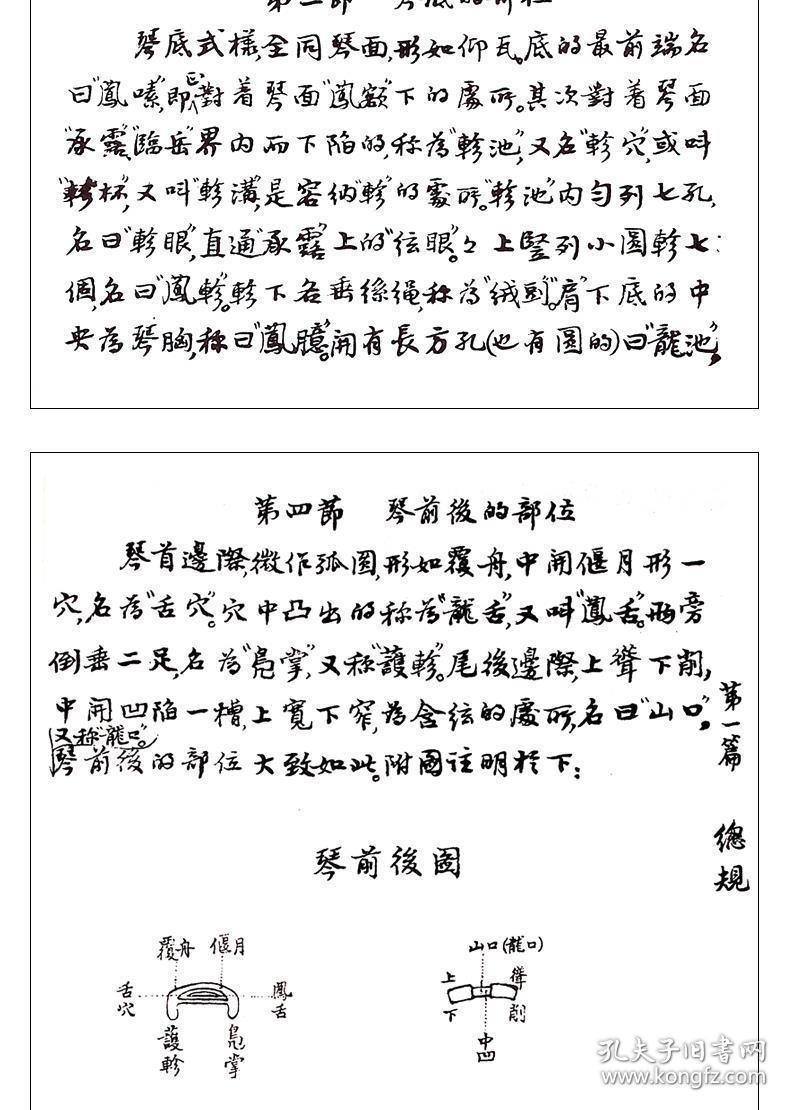 琴底式樣,全同琴面,形如仰瓦。底的最前端名
曰"鳳嗉",即正對着琴面"鳳額"下的處所。其次對着琴面
"承露""臨岳"界內而下陷的,称為"軫池",又名"軫穴",或叫
"軫杯",又叫"軫溝",是容納"軫"的處所。"軫池"內勻列七孔,
名曰"軫眼",直通"承露"上的"絃眼"。々上竪列小圓軫七
個,名曰"鳳軫"。軫下各垂絲绳,称為"绒剅"。"肩"下底的中
央為琴胸,称曰"鳳臆"。開有長方孔(也有圓的)曰"龍池",
第四節 琴前後的部位
琴首邊際,微作弧圆,形如覆舟,中開偃月形一
穴,名為"舌穴"。穴中凸出的称為"龍舌",又叫"鳳舌"。兩旁
倒垂二足,名為"鳧掌",又称"護軫"。尾後邊際,上聳下削,
中開凹陷一槽,上寬下窄,為含絃的處所,名曰"山口",
又称"龍口"。
琴前後的部位大致如此。附圖注明於下:
第一篇 總規
琴前後圖
覆舟 偃月
舌穴
鳳舌
護軫
鳧掌
山口(龍口)
上 聳
下 削
中凹
孔夫子旧書网
www.kongfz.com